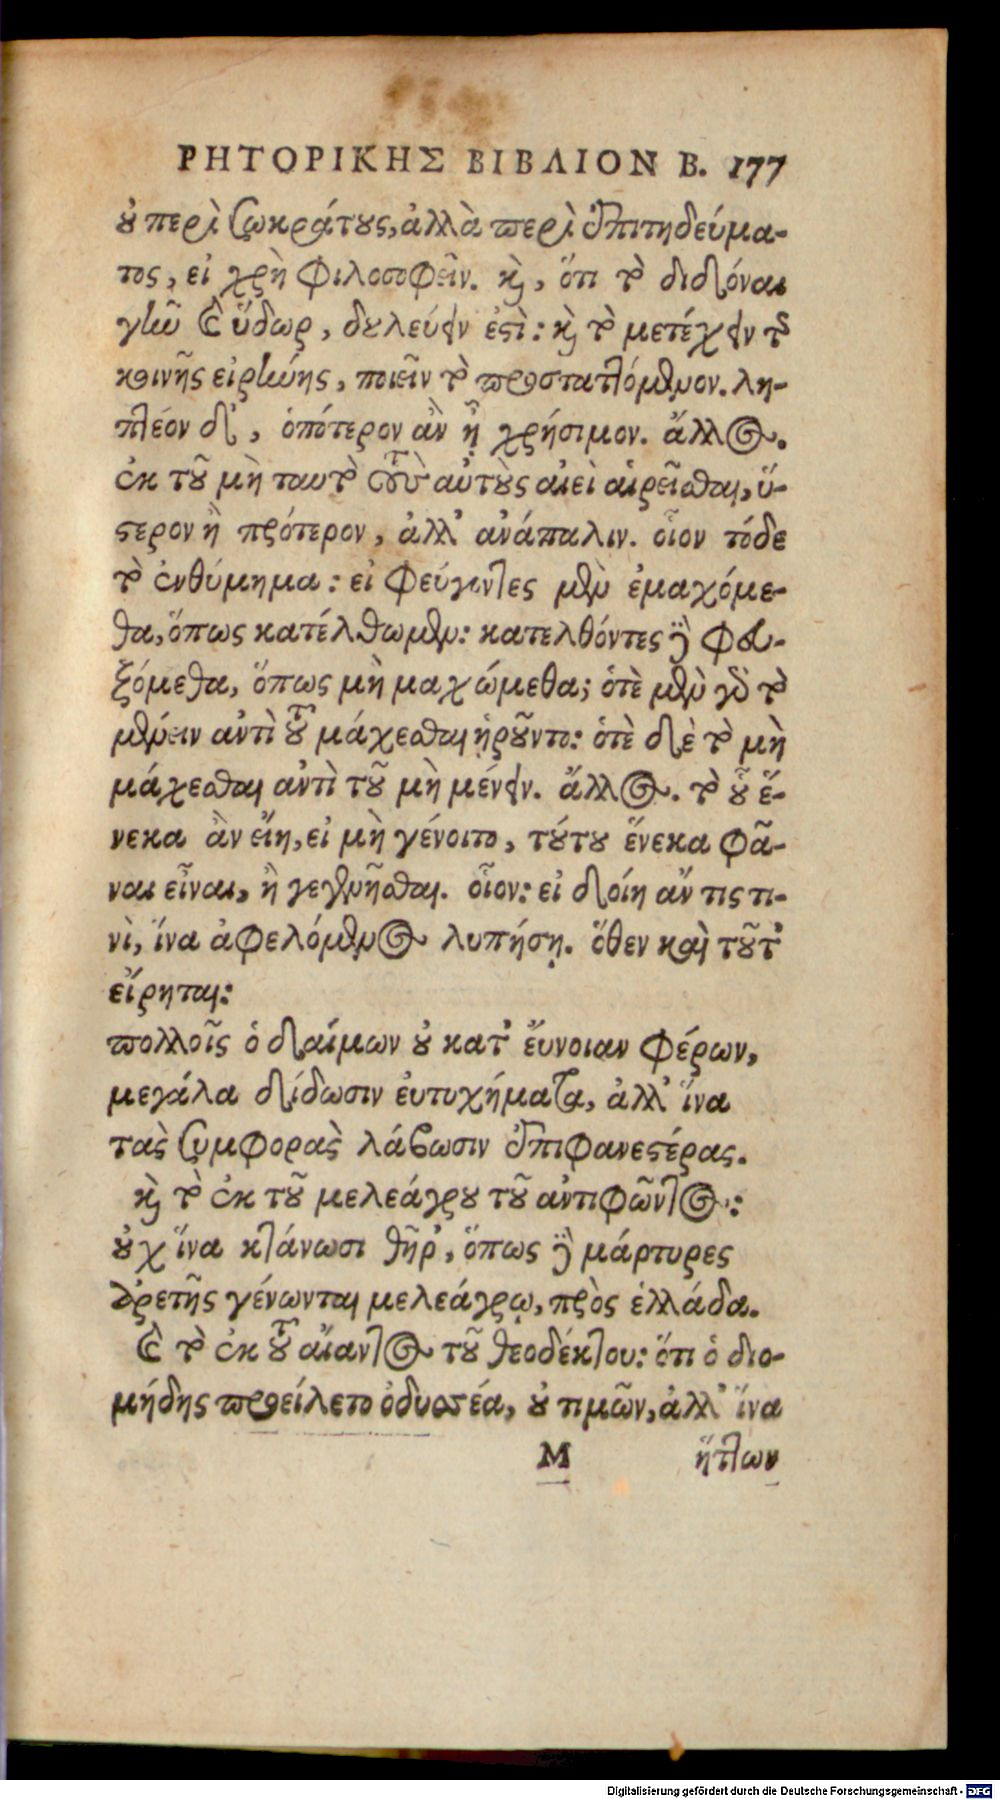 ΡΗΤΟΡΙΚΗΣ ΒΙΒΛΙΟΝ Β. 177
οὐ περὶ Σωκράτους, ἀλλὰ περὶ ἐπιτηδεύμα-
τος, εἰ χρὴ φιλοσοφεῖν. καὶ, ὅτι τὸ διδόναι
γῆν καὶ ὕδωρ, δουλεύειν ἐστὶ: καὶ τὸ μετέχειν τῆς
κοινῆς εἰρήνης, ποιεῖν τὸ προσταττόμενον. λη-
πτέον δ', ὁπότερον ἂν ᾖ χρήσιμον. ἄλλος.
ἐκ τοῦ μὴ ταυτὸ τοὺς αὐτοὺς αἰεὶ αἱρεῖσθαι, ὕ-
στερον ἢ πρότερον, ἀλλ' ἀνάπαλιν. οἷον τόδε
τὸ ἐνθύμημα: εἰ φεύγοντες μὲν ἐμαχόμε-
θα, ὅπως κατέλθωμεν: κατελθόντες δὲ φευ-
ξόμεθα, ὅπως μὴ μαχώμεθα; ὁτὲ μὲν γὰρ τὸ
μένειν ἀντὶ τοῦ μάχεσθαι ᾑροῦντο: ὁτὲ δὲ τὸ μὴ
μάχεσθαι ἀντὶ τοῦ μὴ μένειν. ἄλλος. τὸ οὗ ἕ-
νεκα ἂν εἴη, εἰ μὴ γένοιτο, τούτου ἕνεκα φά-
ναι εἶναι, ἢ γεγενῆσθαι. οἷον: εἰ δοίη ἄν τις τι-
νὶ, ἵνα ἀφελόμενος λυπήσῃ. ὅθεν καὶ τοῦτ'
εἴρηται:
πολλοῖς ὁ δαίμων οὐ κατ' εὔνοιαν φέρων,
μεγάλα δίδωσιν εὐτυχήματα, ἀλλ' ἵνα
τὰς συμφορὰς λάβωσιν ἐπιφανεστέρας.
καὶ τὸ ἐκ τοῦ μελεάγρου τοῦ ἀντιφῶντος:
οὐχ ἵνα κτάνωσι θῆρ', ὅπως δὲ μάρτυρες
ἀρετῆς γένωνται μελεάγρῳ, πρὸς ἑλλάδα.
καὶ τὸ ἐκ τοῦ αἴαντος τοῦ θεοδέκτου: ὅτι ὁ διο-
μήδης προείλετο ὀδυσσέα, οὐ τιμῶν, ἀλλ' ἵνα
Μ ἥττων
Digitalisierung gefördert durch die Deutsche Forschungsgemeinschaft - DFG